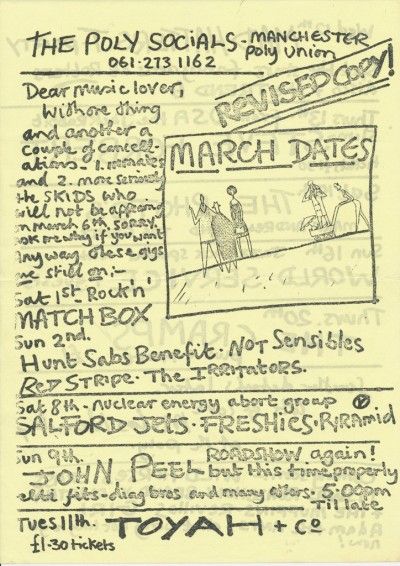 THE POLY SOCIALS - MANCHESTER
poly union
061-273 1162
REVISED COPY!
Dear music lover,
With one thing
and another a
couple of cancell-
ations - 1. inmates
and 2. more seriously
the SKIDS who
will not be appearing
on march 6th sorry.
ask me why if you want
Anyway these gigs
are still on:-
MARCH DATES
Sat 1st Rock 'n'
MATCHBOX
Sun 2nd.
Hunt Sabs Benefit. NOT Sensibles
RED STRIPE. The IRRITATORS.
Sat 8th - nuclear energy abort group
SALFORD Jets - FRESHIES. PYRAMID
Sun 9th. ROADSHOW again!
JOHN PEEL but this time properly
elti fits - diag bros and many others - 5.00pm
Til late
Tues 11th. TOYAH + Co
£1.30 tickets